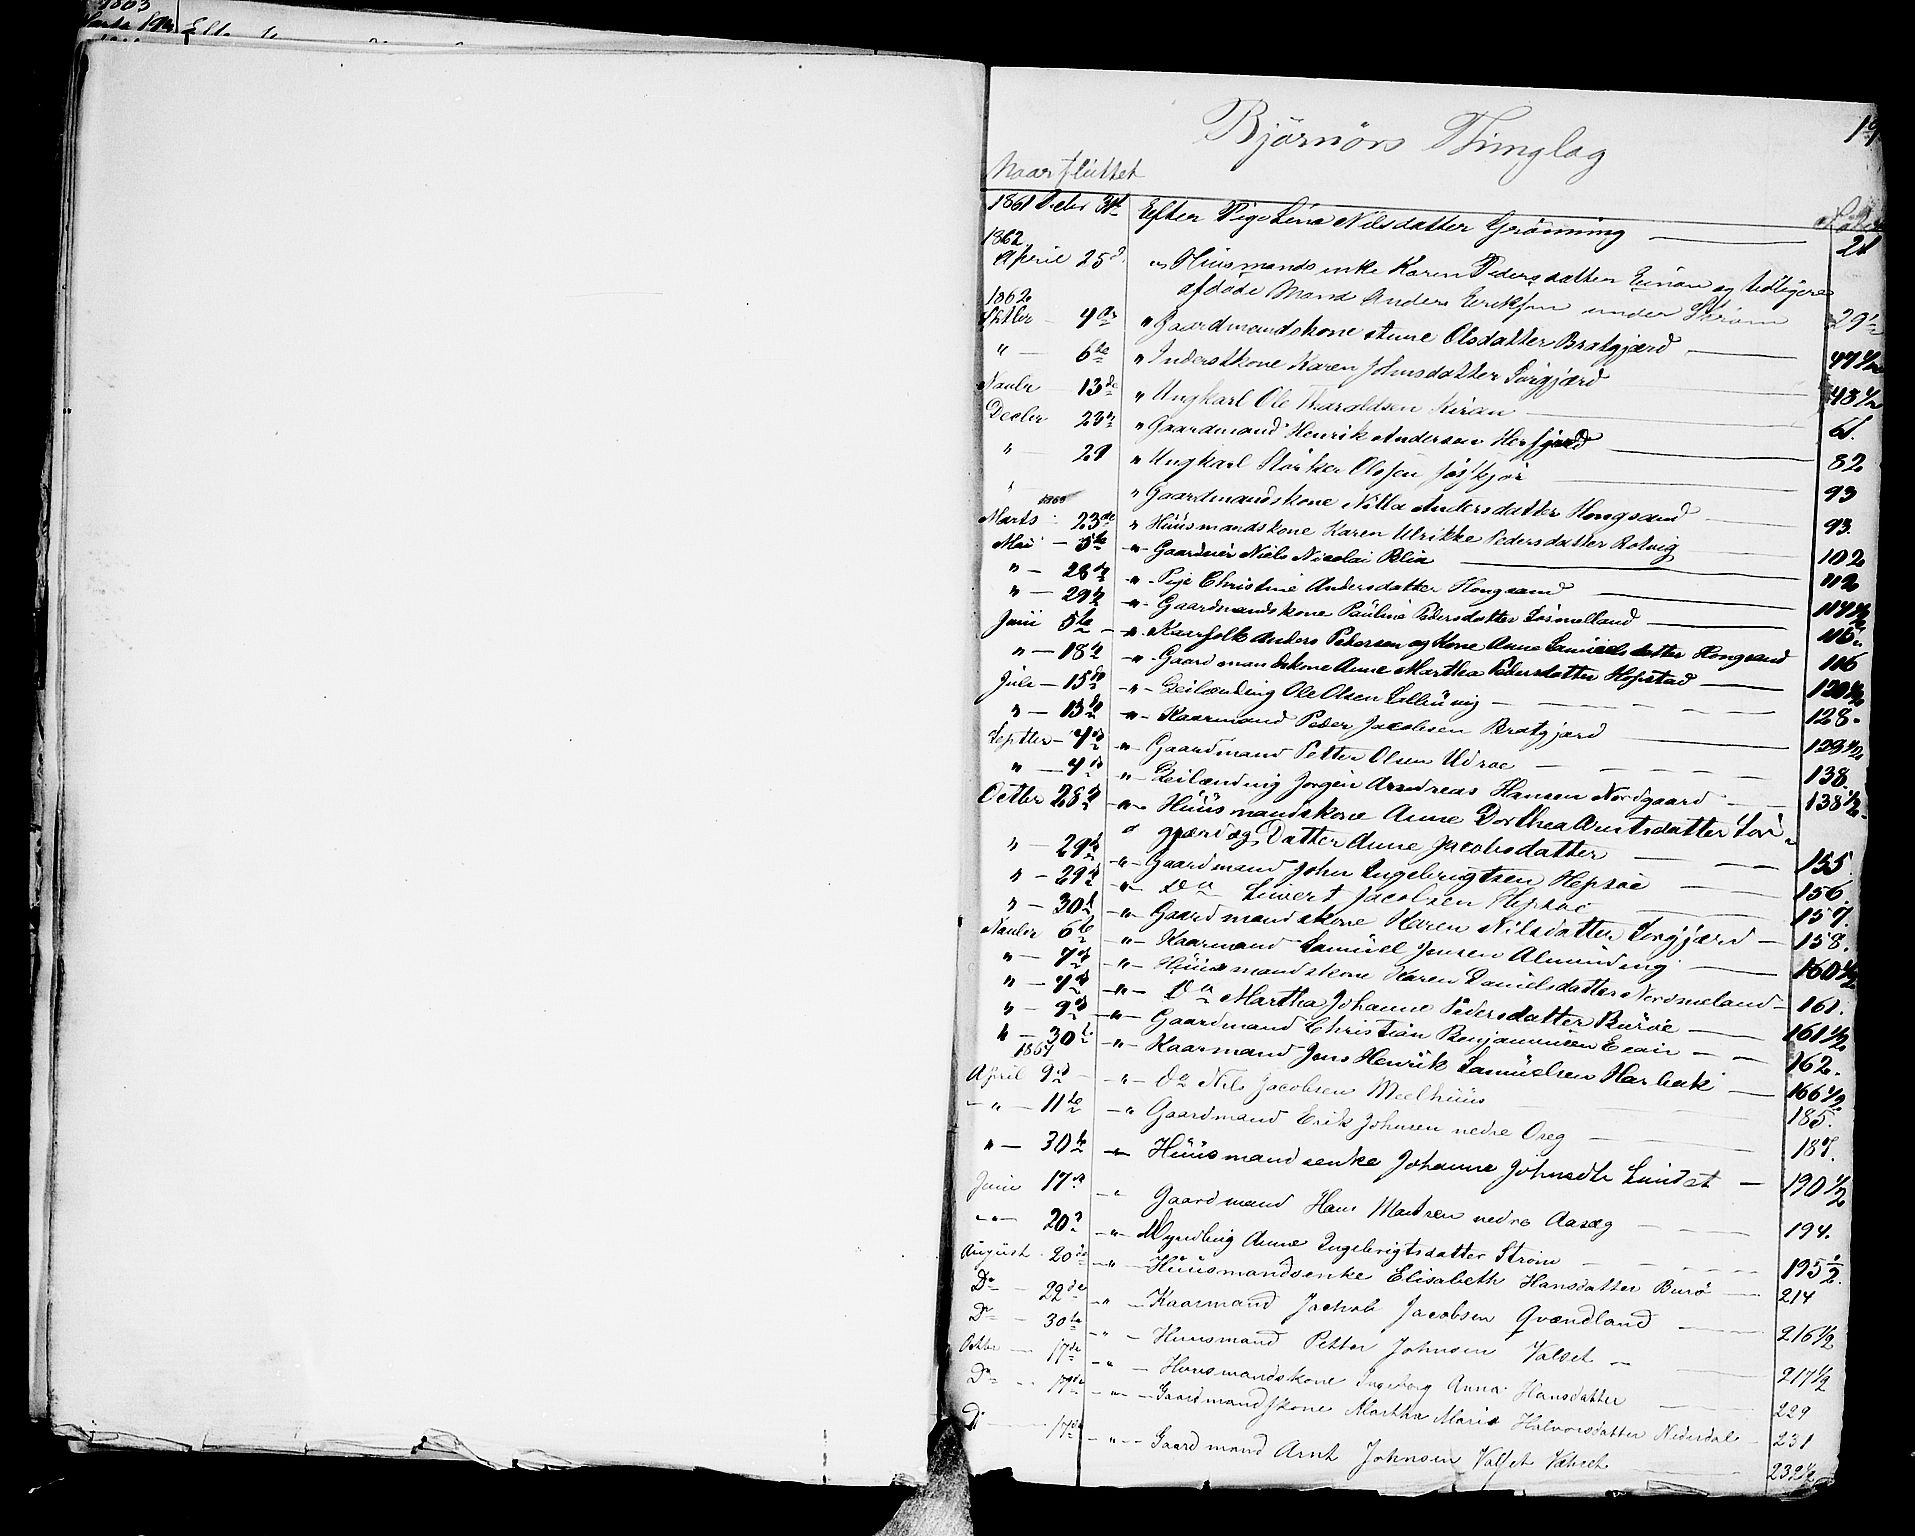 1863
Bjørnørs Thinglag
Naar fluttet
1861 Decbr 31t Efter Pige Lina Nilsdatter Grønning — 21
1862
April 25d " Huusmandsenke Karen Pedersdatter Einan og tidligere
afdøde Mand Anders Erriksen under Strøm 29 1/2
1862
" Gaardmandskone Anne Olsdatter Bratgjærd — 47 1/2
" — 6te " Inderstkone Karen Johnsdatter Sørgjærd 48 1/2
Novbr 13de " Ungkarl Ole Tharaldsen Kiran — 61.
Decbr 23d " Gaardmand Henrik Andersen Herfjord — 82
" — 29 " Ungkarl Størker Olsen — 93
" 1863 " Gaardmandskone Nilla Andersdatter Hongsand — 93.
Marts 23de " Huusmandskone Karen Ulrikke Pedersdatter Rotvig — 102
Mai — 5te " Gaardmand Niels Nicolai — 112
" — 28de " Pige Christine Andersdatter Hongsand — 114 1/2
" — 29de " Gaardmandskone Pauline Pedersdatter Sørmelland — 115
Juni 5te — " Kaarfolk Anders Pedersen og Kone Anne Samuelsdatter Hongsand 116
" — 18de " Gaardmandskone Anne Martha Pedersdatter Hofstad — 120 1/2
Juli — 15de — " — Ole Olsen — 128.
" — 15de " Kaarmand Peder Jacobsen Bratgjærd — 129 1/2
Septbr — 4de " Gaardmand Petter Olsen Udroe — 138.
" — 4de " Jørgen Andreas Hansen Nordgaard — 138 1/2
Octbr 28de " Huusmandskone Anne Dorthea Arntsdatter Sør-
gjærd og Datter Anne Jacobsdatter — 155.
" — 29de " Gaardmand John Ingebrigtsen Hepsøe — 156.
" — 29de " Do Sivert Jacobsen Hepsøe — 157.
" — 30te " Gaardmandskone Karen Nilsdatter Sørgjærd — 158.
Novbr 6te " Kaarmand Samuel Jensen Almenning — 160 1/2
" — 7de " Huusmandskone Karen Danielsdatter Nordmeland — 161.
" — 7de — " — Do Martha Johanne Pedersdatter Burøe — 161 1/2
" — 9de " Gaardmand Christian Benjaminsen — 162.
" — 30te " Kaarmand Jens Henrik Samuelsen Harbak — 166 1/2
1864
April 9de — " Do Nils Jacobsen Meelhuus — 185.
— " — 11te — " Gaardmand Erik Johnsen nedre Oreg — 187.
" — 30te " Huusmandsenke Johanne Johnsdtr — 190 1/2
Juni 17de — " Gaardmand Hans Martsen nedre Aasæg — 194.
— " — 20de — " Myndling Anne Ingebrigtsdatter Strøm — 195 1/2.
August 20de — " — Huusmandsenke Elisabeth Hansdatter Burø — 214
Do — 22de — " — Kaarmand Jachob Jacobsen Qvændland — 216 1/2
Do — 30te — " — Huusmand Petter Johnsen Valset — 217 1/2
Octbr — 17de — " — Huusmandskone Ingeborg Anna Hansdatter — 229
Do — 17de — " — Gaardmandskone Martha Maria Halvorsdatter Nedredal — 231
Do — 17de — " — Gaardmand Arnt Johnsen Valset Valset — 232 1/2